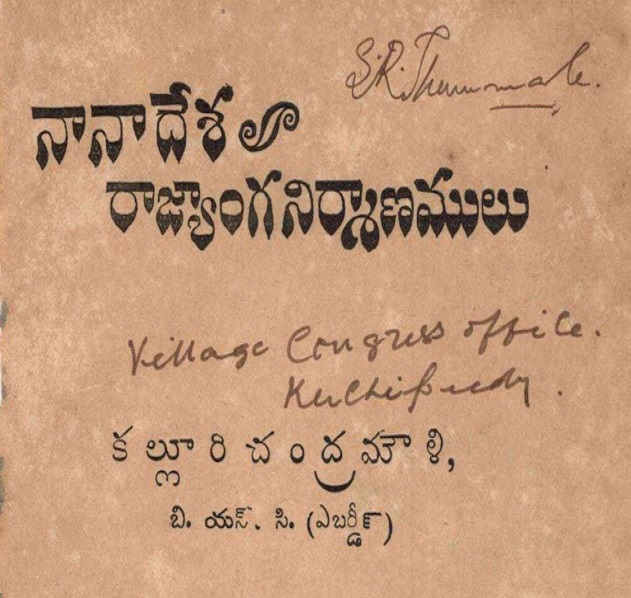 నానాదేశ
రాజ్యాంగనిర్మాణములు
Village Congress office.
కల్లూరి చంద్రమౌళి,
బి. యస్. సి. (ఎబర్డీన్)